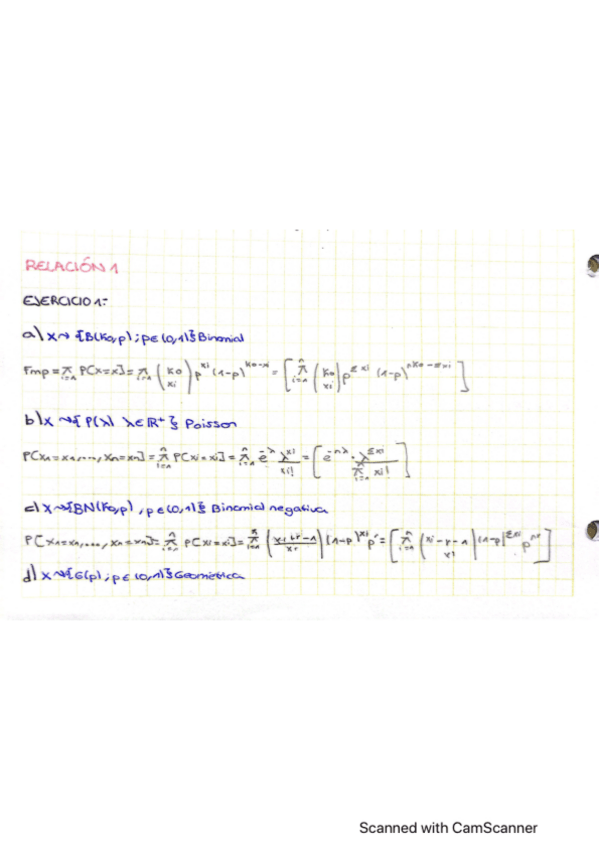 RELACIÓN 1
EJERCICIO 1:
a) X ~> {B(k0,p) ; p ∈ (0,1)} Binomial
Fmp = π_{i=1}^n P[X=x] = π_{i=1}^n (k0 xi) p^{xi} (1-p)^{k0-xi} = [ π_{i=1}^n (k0 xi) p^{Σxi} (1-p)^{nk0-Σxi} ]
b) X ~> { P(λ) λ ∈ ℝ⁺ } Poisson
P[X1=x1,..., Xn=xn] = π_{i=1}^n P[Xi=xi] = π_{i=1}^n e^{-λ} λ^{xi}/xi! = [ e^{-nλ} · λ^{Σxi} / π_{i=1}^n xi! ]
c) X ~> {BN(k0,p) , p ∈ (0,1)} Binomial negativa
P[X1=x1,..., Xn=xn] = π_{i=1}^n P[Xi=xi] = π_{i=1}^n (xi+r-1 xi) (1-p)^{xi} p^r = [ π_{i=1}^n (xi-r-1 xi) (1-p)^{Σxi} p^{nr} ]
d) X ~> {G(p) ; p ∈ (0,1)} Geométrica
Scanned with CamScanner